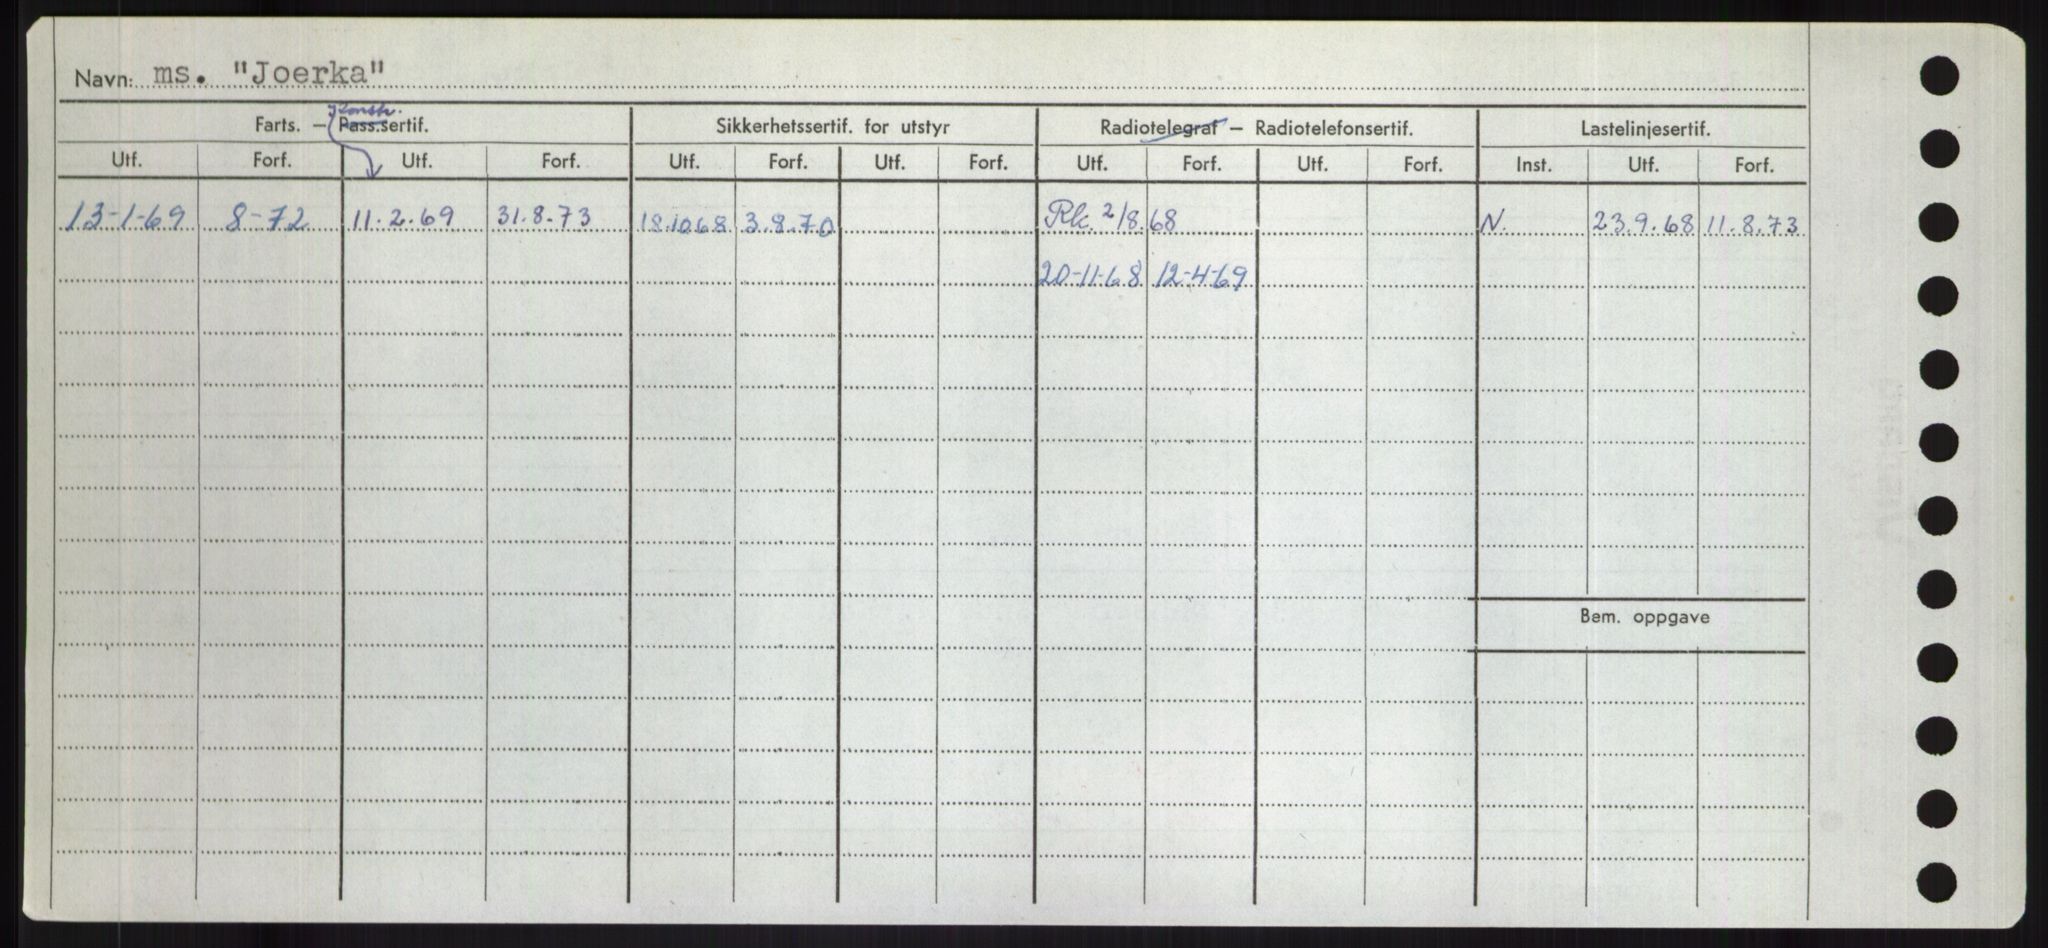 Navn: ms. "Joerka"
Konstr.
Farts. – Pass.sertif. Sikkerhetssertif. for utstyr Radiotelegraf – Radiotelefonsertif. Lastelinjesertif.
Utf. Forf. Utf. Forf. Utf. Forf. Utf. Forf. Utf. Forf. Utf. Forf. Inst. Utf. Forf.
13-1-69 8-72 11.2.69 31.8.73 18.10.68 3.8.70 Rk. 2/8.68 N. 23.9.68 11.8.73
20-11-68 12-4-69
Bem. oppgave